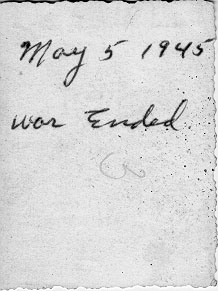 May 5 1945
war Ended